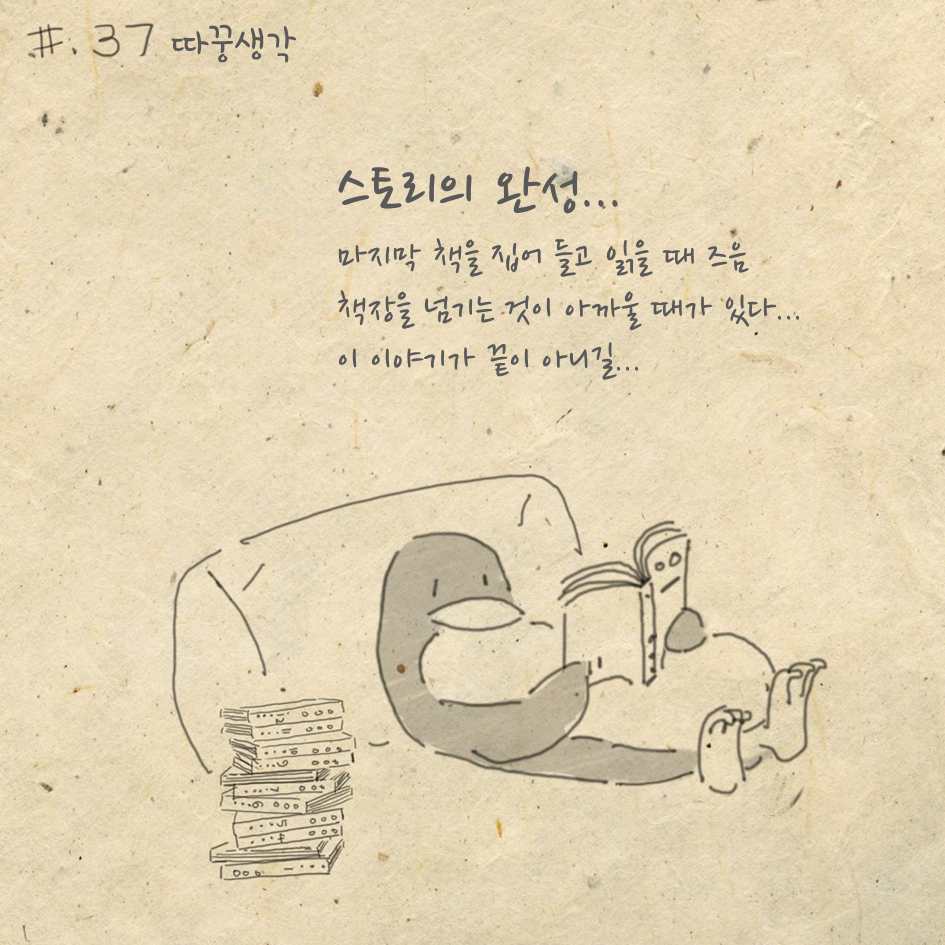 #. 37 따꿍생각
스토리의 완성...
마지막 책을 집어 들고 읽을 때 즈음
책장을 넘기는 것이 아까울 때가 있다...
이 이야기가 끝이 아니길...